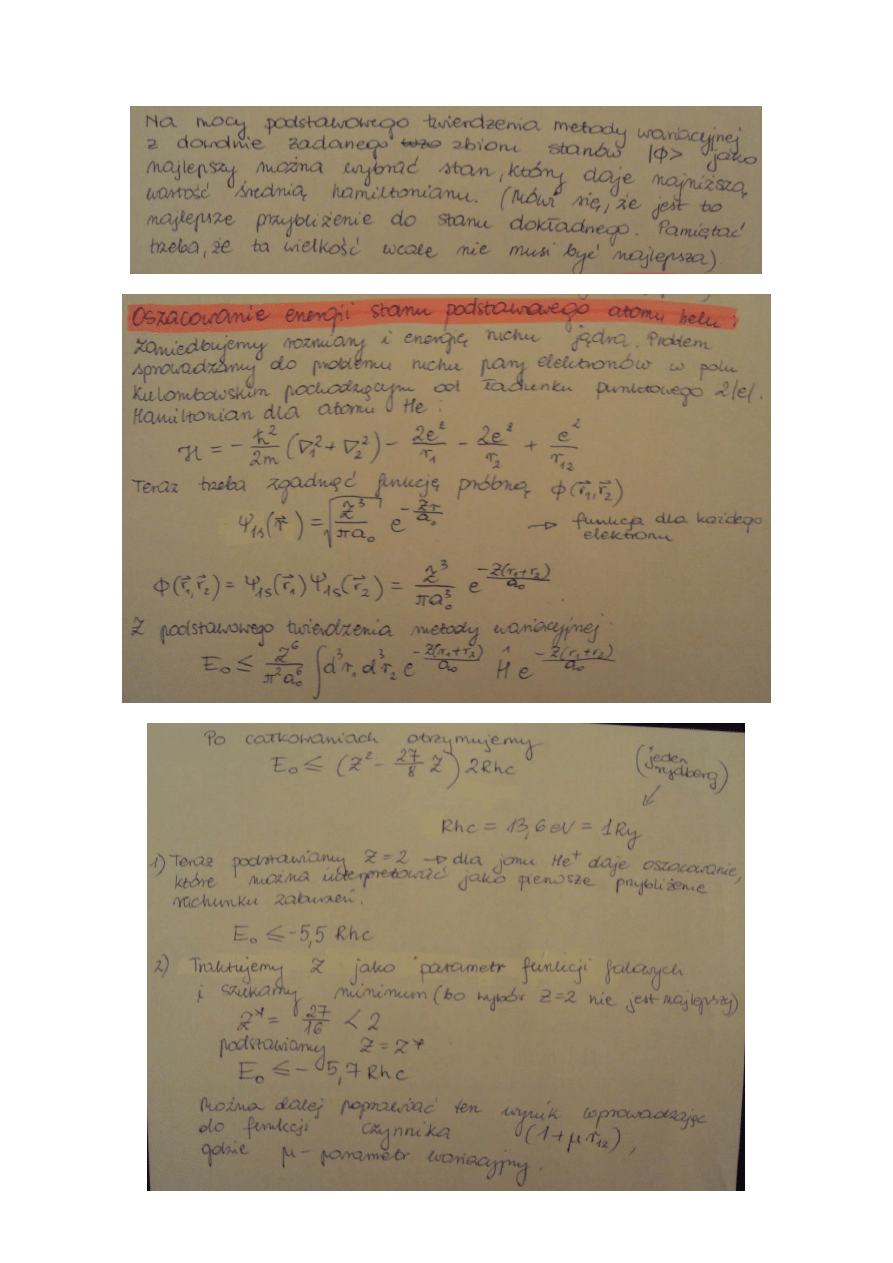 Na mocy podstawowego twierdzenia metody wariacyjnej
z dowolnie zadanego zbioru stanów |Φ> jako
najlepszy można wybrać stan, który daje najniższą
wartość średnią hamiltonianu. (Mówi się, że jest to
najlepsze przybliżenie do stanu dokładnego. Pamiętać
trzeba, że ta wielkość wcale nie musi być najlepsza)
Oszacowanie energii stanu podstawowego atomu helu:
Zaniedbujemy rozmiary i energię ruchu jądra. Problem
sprowadzamy do problemu ruchu pary elektronów w polu
kulombowskim pochodzącym od ładunku punktowego 2|e|.
Hamiltonian dla atomu He:
H = - ħ²/2m (∇₁² + ∇₂²) - 2e²/r₁ - 2e²/r₂ + e²/r₁₂
Teraz trzeba zgadnąć funkcję próbną Φ(r⃗₁,r⃗₂)
Ψ₁s(r⃗) = √(Z³/πa₀) e^(-Zr/a₀) → funkcja dla każdego
elektronu
Φ(r⃗₁,r⃗₂) = Ψ₁s(r⃗₁)Ψ₁s(r⃗₂) = Z³/πa₀³ e^(-Z(r₁+r₂)/a₀)
Z podstawowego twierdzenia metody wariacyjnej
E₀ ≤ Z⁶/π²a₀⁶ ∫d³r₁ d³r₂ e^(-Z(r₁+r₂)/a₀) Ĥ e^(-Z(r₁+r₂)/a₀)
Po całkowaniach otrzymujemy
E₀ ≤ (Z² - 27/8 Z) 2Rhc
(jeden
rydberg)
Rhc = 13,6 eV = 1Ry
1) Teraz podstawiamy Z=2 → dla jonu He⁺ daje oszacowanie,
które można interpretować jako pierwsze przybliżenie
rachunku zaburzeń.
E₀ ≤ -5,5 Rhc
2) Traktujemy Z jako parametr funkcji falowych
i szukamy minimum (bo wybór Z=2 nie jest najlepszy)
Z* = 27/16 < 2
podstawiamy Z = Z*
E₀ ≤ - 5,7 Rhc
Można dalej poprawiać ten wynik wprowadzając
do funkcji czynnika (1+μr₁₂),
gdzie μ - parametr wariacyjny.